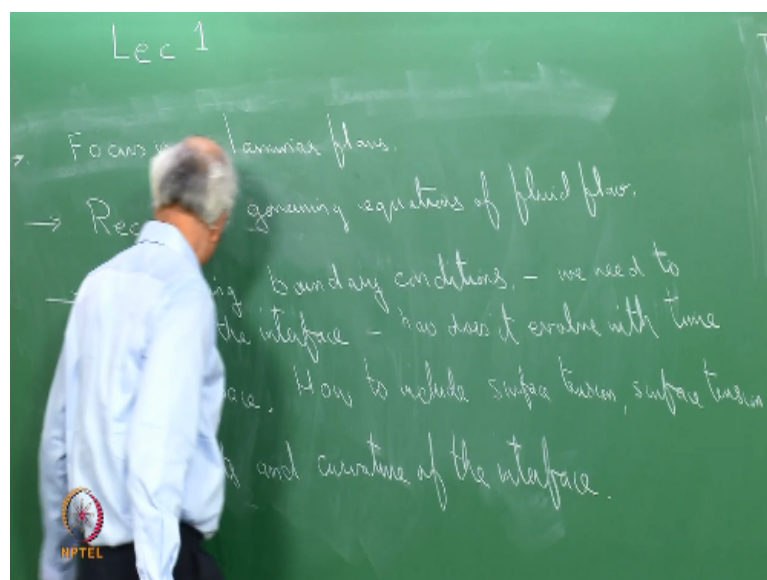 Lec 1
Focus laminar flows.
→ Rec governing equations of fluid flow.
→ ng boundary conditions. - we need to
the interface - how does it evolve with time
ace. How to include surface tension, surface tension
and curvature of the interface.
NPTEL